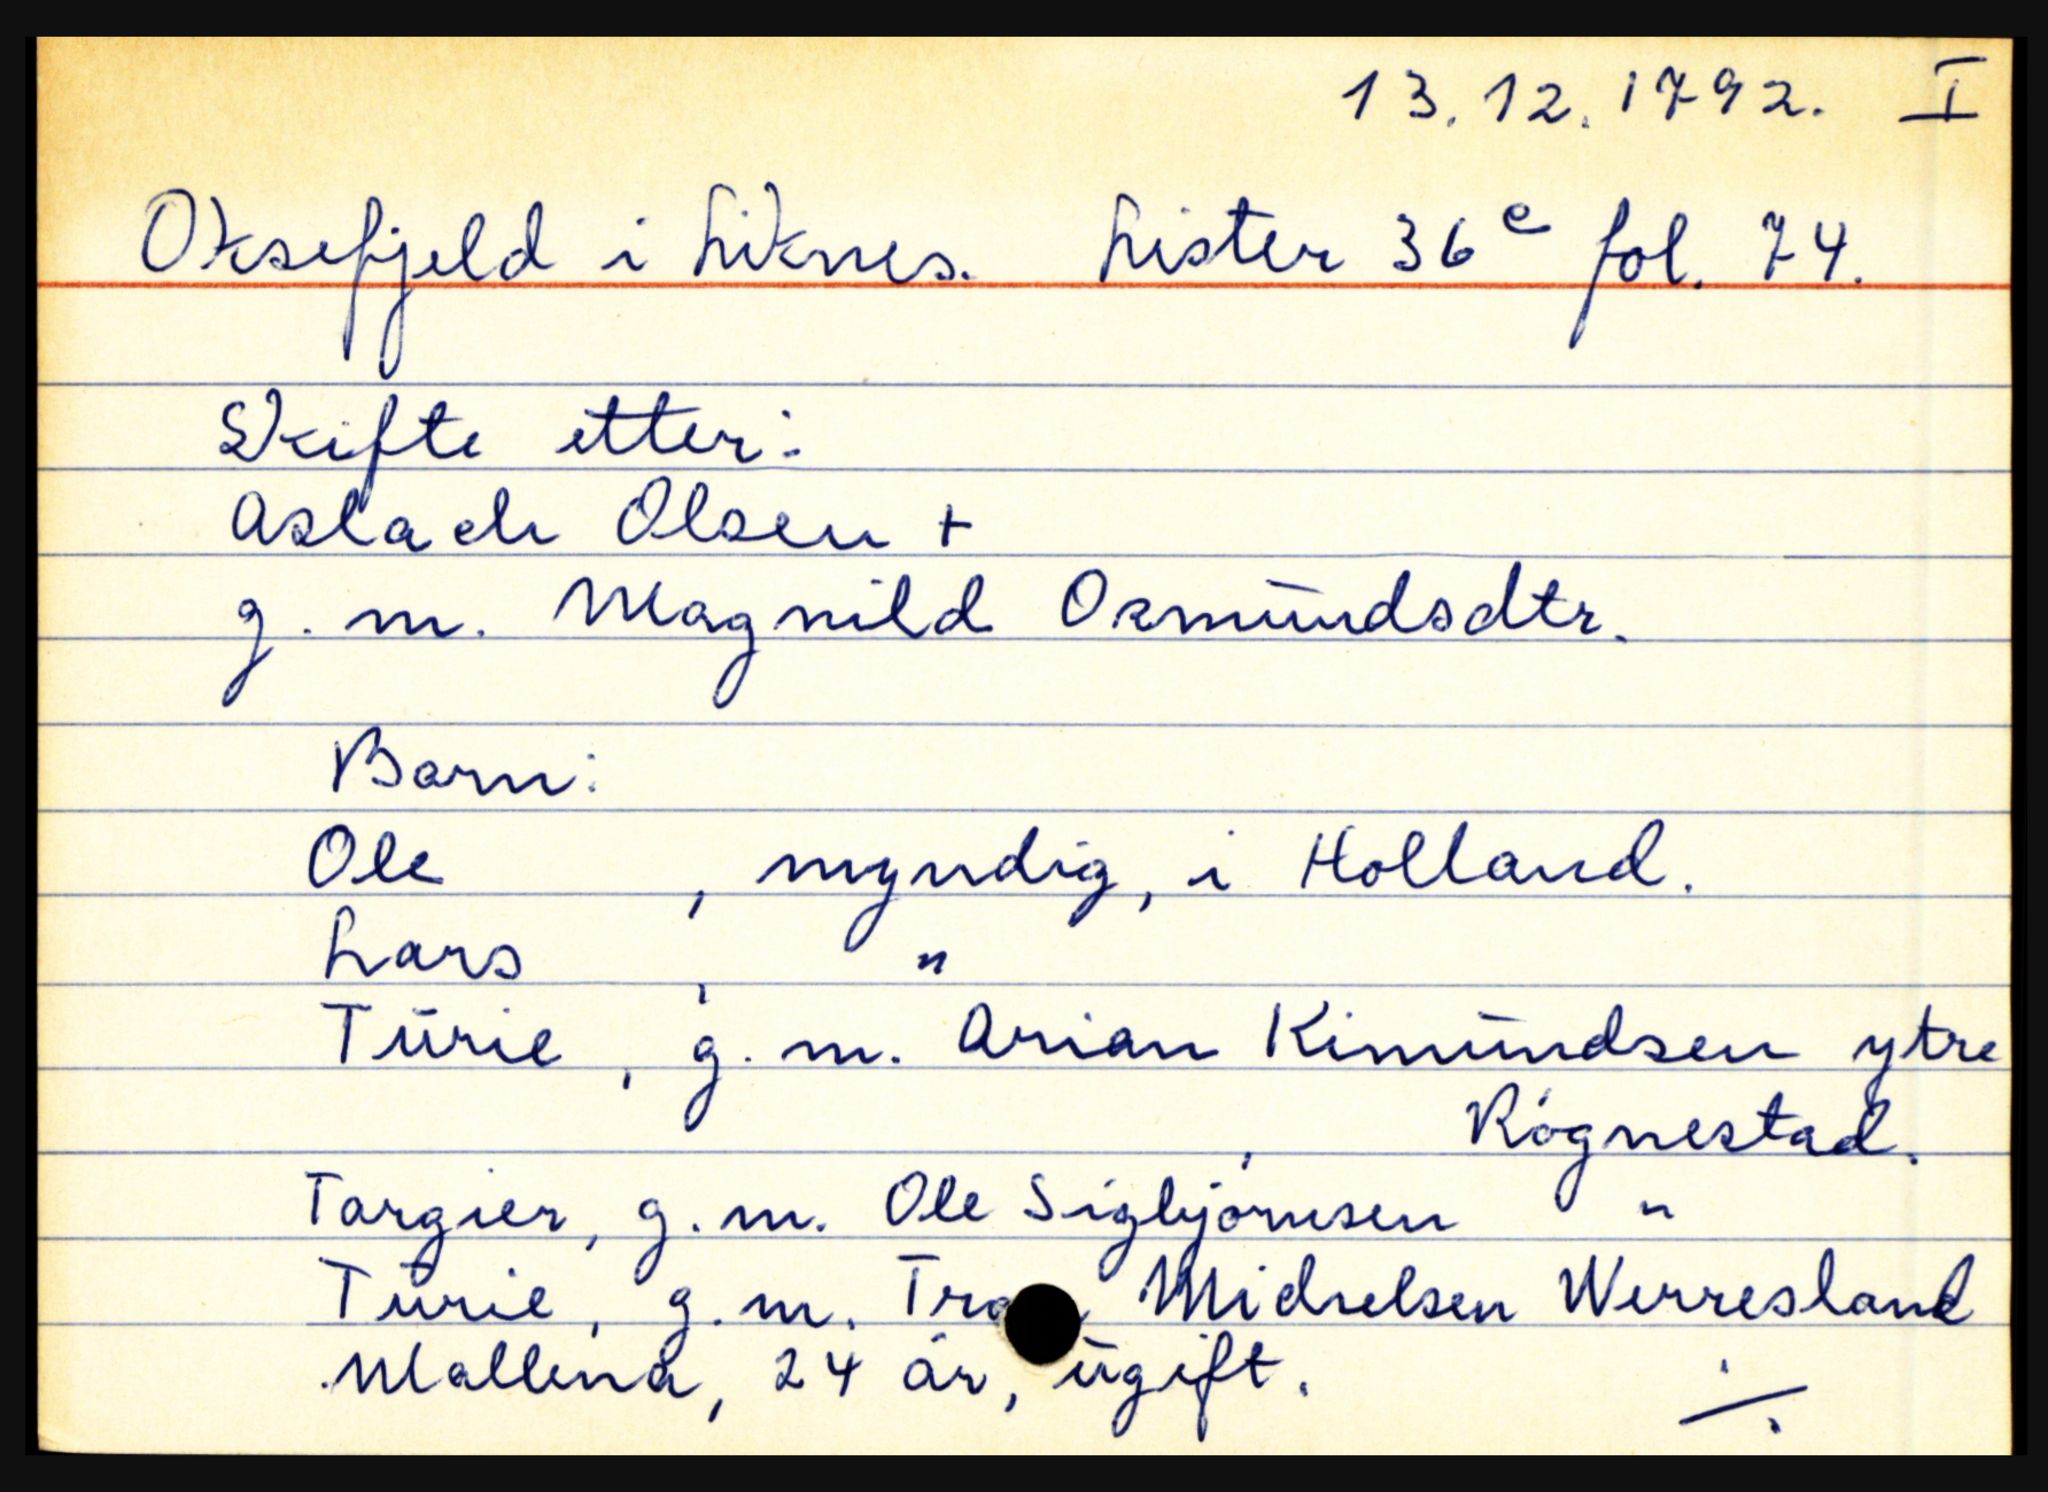 13.12.1792. I
Oksefjeld i Liknes. Lister 36e fol. 74.
Skifte etter:
Aslach Olsen +
g. m. Magnild Osmundsdtr.
Barn:
Ole , myndig, i Holland.
Lars , "
Turie , g. m. Arian Kimundsen ytre
, Røgnestad.
Torgier, g. m. Ole Sigbjørnsen "
Turie , g. m. Michelsen Werresland
Mallena, 24 år, ugift.
⁒